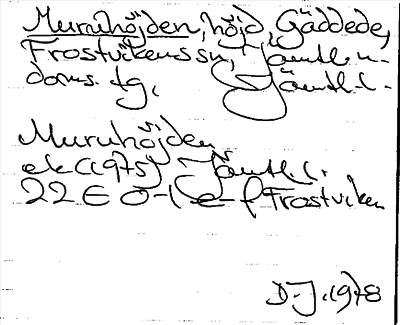 Murruhöjden, höjd, Gäddede,
Frostvikens sn, Jämtl. n.
doms. tg, Jämtl. l.
Murruhöjden
ek (1975) Jämtl. l.
22 E 0-1 e-f Frostviken
D.J. 1978